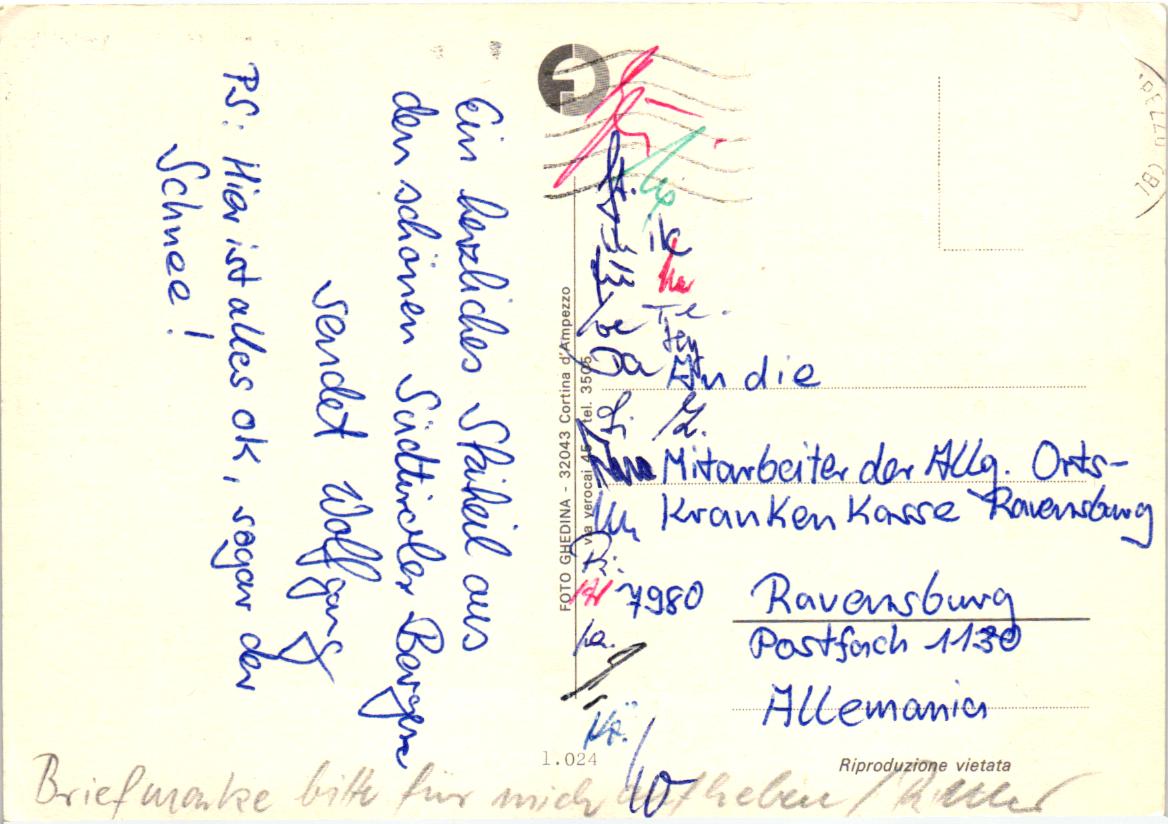 Ein herzliches Skiheil aus
den schönen Südtiroler Bergen
sendet Wolfgang
PS: Hier ist alles ok, sogar der
Schnee!
FOTO GHEDINA - 32043 Cortina d'Ampezzo
via verocai 45 tel. 3505
An die
Mitarbeiter der Allg. Orts-
Krankenkasse Ravensburg
7980 Ravensburg
Postfach 1130
Allemania
1.024
Riproduzione vietata
Briefmarke bitte für mich aufheben /